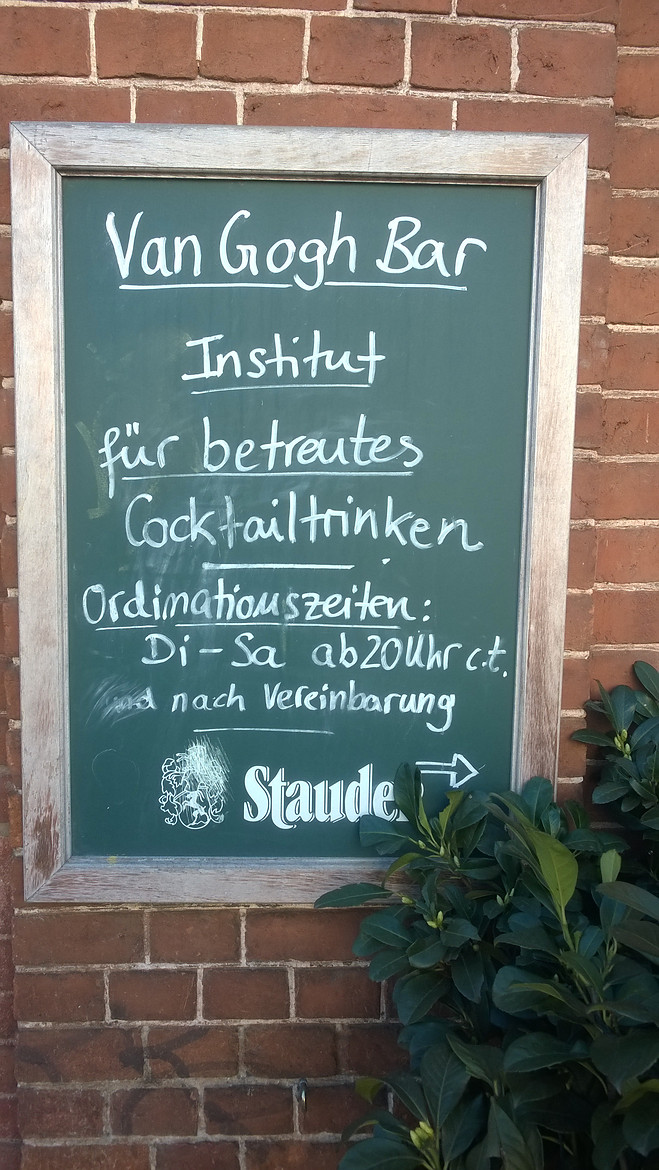 Van Gogh Bar
Institut
für betreutes
Cocktailtrinken
Ordinationszeiten:
Di - Sa ab 20 Uhr c.t.
und nach Vereinbarung
Stauder